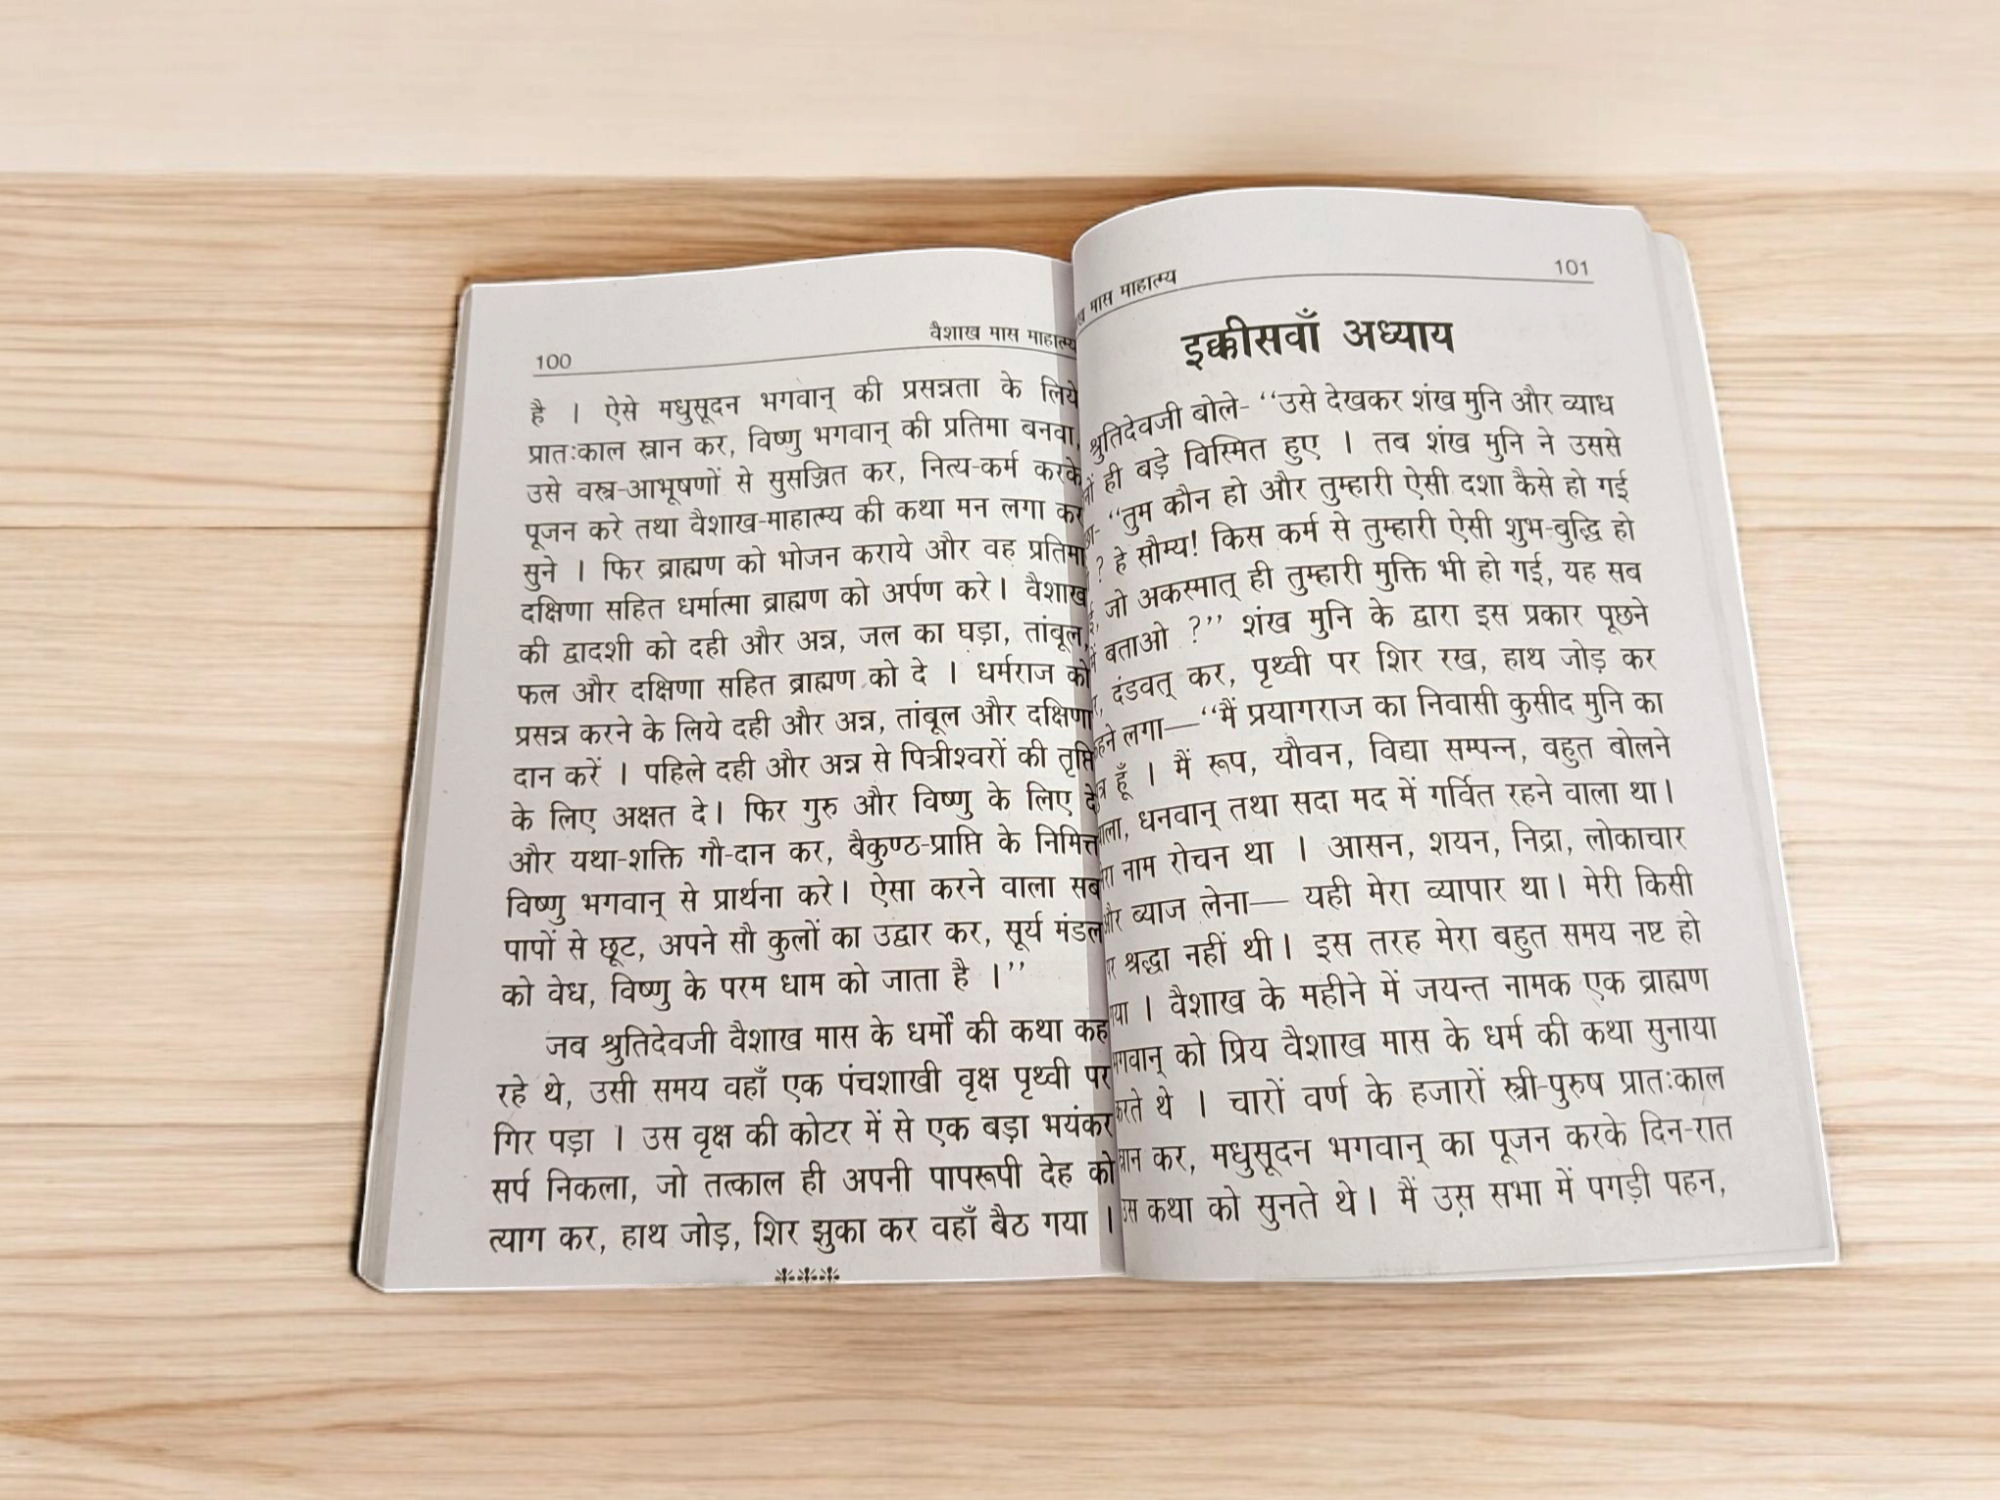 100
वैशाख मास माहात्म्य
है । ऐसे मधुसूदन भगवान् की प्रसन्नता के लिये
प्रातःकाल स्नान कर, विष्णु भगवान् की प्रतिमा बनवा,
उसे वस्त्र-आभूषणों से सुसज्जित कर, नित्य-कर्म करके
पूजन करे तथा वैशाख-माहात्म्य की कथा मन लगा कर
सुने । फिर ब्राह्मण को भोजन कराये और वह प्रतिमा
दक्षिणा सहित धर्मात्मा ब्राह्मण को अर्पण करे। वैशाख
की द्वादशी को दही और अन्न, जल का घड़ा, तांबूल,
फल और दक्षिणा सहित ब्राह्मण को दे । धर्मराज को
प्रसन्न करने के लिये दही और अन्न, तांबूल और दक्षिणा
दान करें । पहिले दही और अन्न से पित्रीश्वरों की तृप्ति
के लिए अक्षत दे। फिर गुरु और विष्णु के लिए दे
और यथा-शक्ति गौ-दान कर, बैकुण्ठ-प्राप्ति के निमित्त
विष्णु भगवान् से प्रार्थना करे। ऐसा करने वाला सब
पापों से छूट, अपने सौ कुलों का उद्वार कर, सूर्य मंडल
को वेध, विष्णु के परम धाम को जाता है ।’’
जब श्रुतिदेवजी वैशाख मास के धर्मों की कथा कह
रहे थे, उसी समय वहाँ एक पंचशाखी वृक्ष पृथ्वी पर
गिर पड़ा । उस वृक्ष की कोटर में से एक बड़ा भयंकर
सर्प निकला, जो तत्काल ही अपनी पापरूपी देह को
त्याग कर, हाथ जोड़, शिर झुका कर वहाँ बैठ गया ।
मास माहात्म्य
101
इक्कीसवाँ अध्याय
श्रुतिदेवजी बोले- ‘‘उसे देखकर शंख मुनि और व्याध
ही बड़े विस्मित हुए । तब शंख मुनि ने उससे
‘‘तुम कौन हो और तुम्हारी ऐसी दशा कैसे हो गई
? हे सौम्य! किस कर्म से तुम्हारी ऐसी शुभ-बुद्धि हो
जो अकस्मात् ही तुम्हारी मुक्ति भी हो गई, यह सब
बताओ ?’’ शंख मुनि के द्वारा इस प्रकार पूछने
दंडवत् कर, पृथ्वी पर शिर रख, हाथ जोड़ कर
लगा—‘‘मैं प्रयागराज का निवासी कुसीद मुनि का
हूँ । मैं रूप, यौवन, विद्या सम्पन्न, बहुत बोलने
धनवान् तथा सदा मद में गर्वित रहने वाला था।
नाम रोचन था । आसन, शयन, निद्रा, लोकाचार
और ब्याज लेना— यही मेरा व्यापार था। मेरी किसी
श्रद्धा नहीं थी। इस तरह मेरा बहुत समय नष्ट हो
। वैशाख के महीने में जयन्त नामक एक ब्राह्मण
भगवान् को प्रिय वैशाख मास के धर्म की कथा सुनाया
करते थे । चारों वर्ण के हजारों स्त्री-पुरुष प्रातःकाल
कर, मधुसूदन भगवान् का पूजन करके दिन-रात
उस कथा को सुनते थे। मैं उस सभा में पगड़ी पहन,